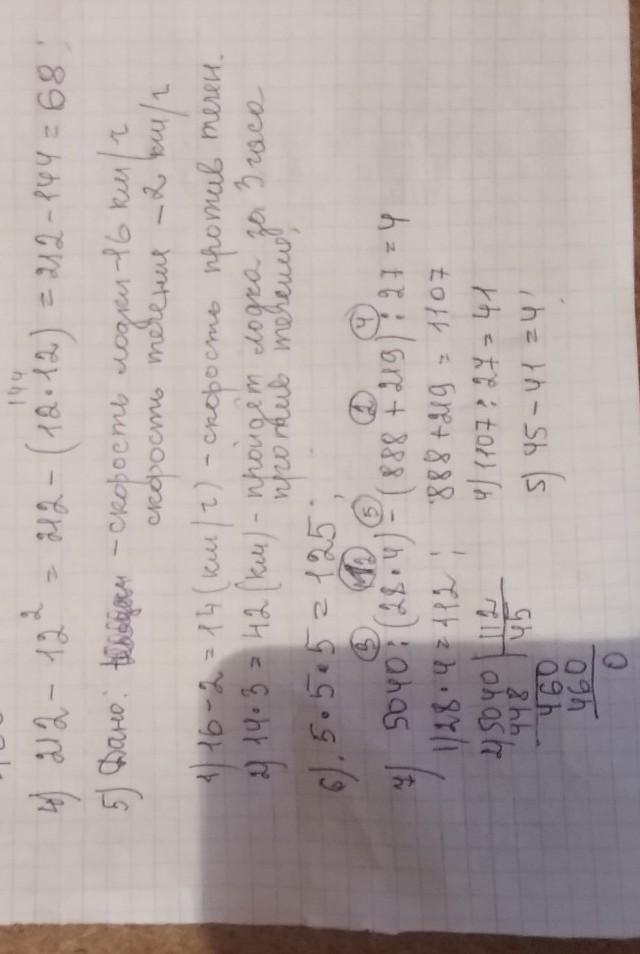 144
4) 212 - 12² = 212 - (12 · 12) = 212 - 144 = 68;
5) Дано: - скорость лодки - 16 км/г
скорость течения - 2 км/г
1) 16 - 2 = 14 (км/г) - скорость против течен.
2) 14 · 3 = 42 (км) - пройдёт лодка за 3 часа
против течению;
6) 5 · 5 · 5 = 125;
7) 5040 : (28 · 4) - (888 + 219) : 27 = 4
1) 28 · 4 = 112; 888 + 219 = 1107
2) 5040 | 112 4) 1107 : 27 = 41
448 | 45 5) 45 - 41 = 4;
560
560
0